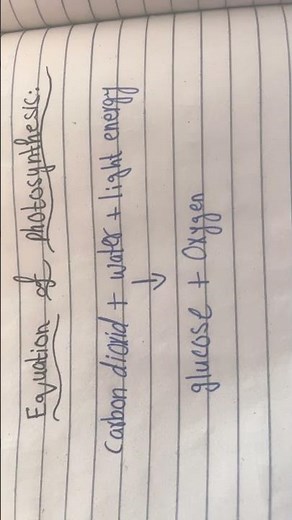 Equation of photosynthesis:
Carbon dioxid + water + light energy
↓
glucose + Oxygen